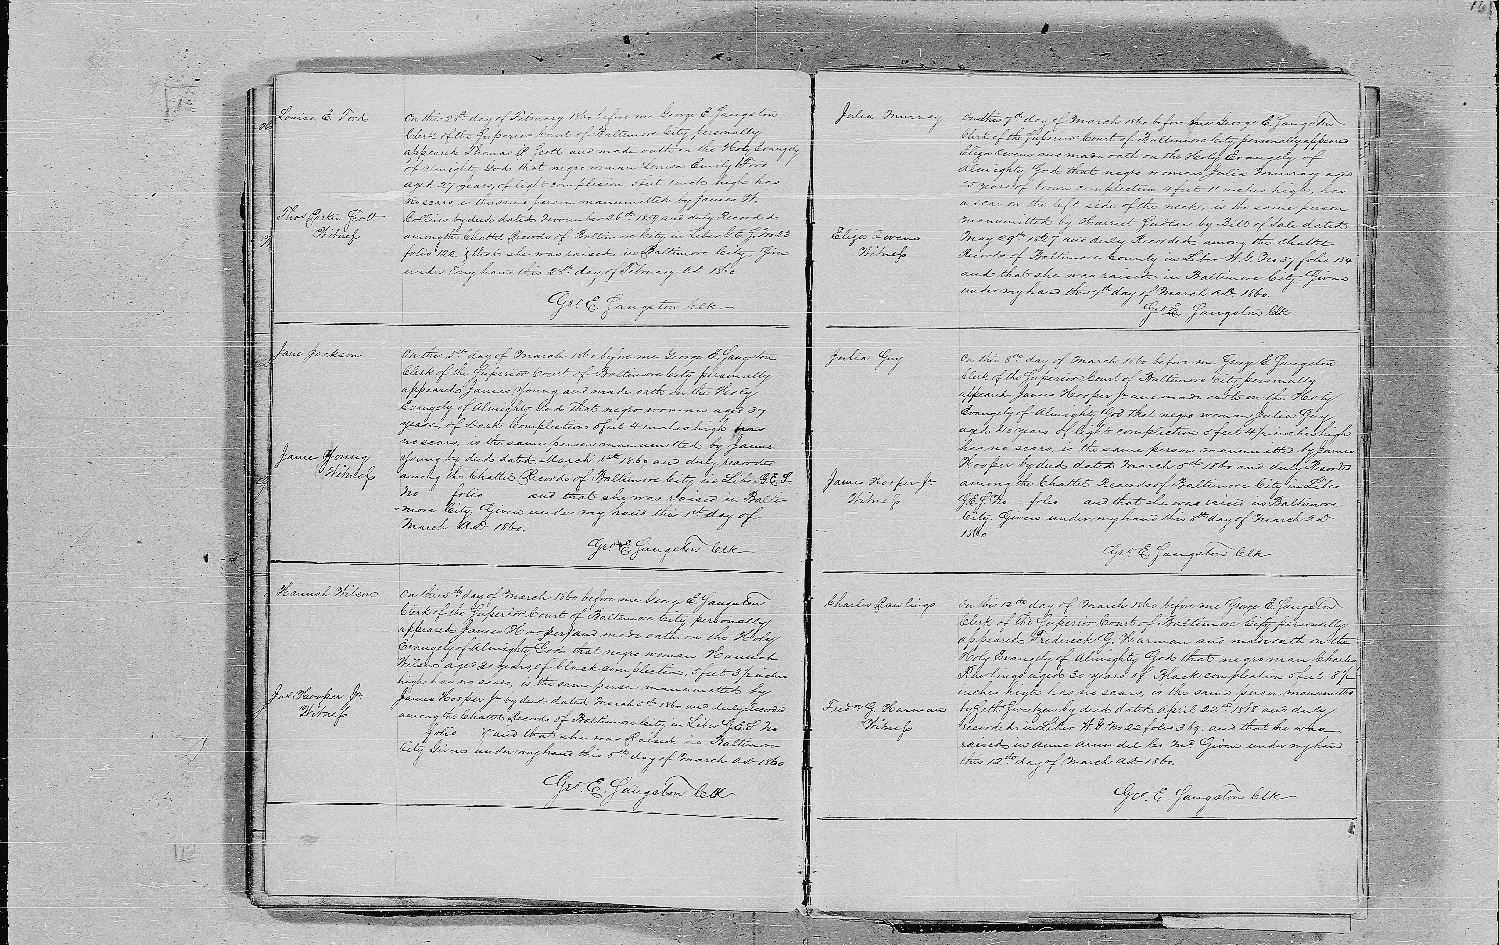 Louisa E. Ford
On this 28th day of February 1860 before me George E. Gangston
Clerk of the Superior Court of Baltimore City, personally
appeared Thomas P. Scott and made oath on the Holy Evangely
of Almighty God that negro woman Louisa Emily Ford
aged 27 years, of light complexion 5 feet inch high has
no scars is the same person manumitted by James H.
Collins by deed dated November 26th 1859 and duly Recorded
among the Chattel Records of Baltimore City in Liber G.E.S. No 23
folio 122 & that she was raised in Baltimore City. Given
under my hand this 28th day of February Ad 1860
Geo. E. Gangston Clk
Thos Parkin Scott
Witness
Jane Jackson
On this day of March 1860 before me George E. Gangston
Clerk of the Superior Court of Baltimore City personally
appeared James Young and made oath on the Holy
Evangely of Almighty God that negro woman aged 37
years of dark Complection 5 feet 4 inches high has
no scars, is the same person manumitted by James
Young by deed dated March 1st 1860 and duly recorded
among the Chattel Records of Baltimore City in Liber G.E.S.
No folio and that she was raised in Balti-
more City. Given under my hand this 1st day of
March AD 1860.
Geo E Gangston Clk
James Young
Witness
Hannah Wilson
On this 5th day of March 1860 before me George E Gangston
Clerk of the Superior Court of Baltimore City personally
appeared James Hooper and made oath on the Holy
Evangely of Almighty God that negro woman Hannah
Wilson aged years, of black complection, 5 feet 3½ inches
high has no scars, is the same person manumitted by
James Hooper Jr by deed dated March 5th 1860 and duly recorded
among the Chattel Records of Baltimore City in Liber G.E.S. No
folio & and that she was Raised in Baltimore
City Given under my hand this 5th day of March Ad 1860
Geo. E Gangston Clk
Jas Hooper Jr
Witness
Julia Murray
On this 7th day of March 1860 before me George E. Gangston
Clerk of the Superior Court of Baltimore City personally appeared
Eliza Owens and made oath on the Holy Evangely of
Almighty God that negro woman Julia Murray aged
years of brown complection 4 feet 11 inches high, has
a scar on the left side of the neck, is the same person
manumitted by Harriet by Bill of Sale dated
May 29th 1827 and duly Recorded among the Chattel
Records of Baltimore County in Liber W.G. No 37 folio 184
and that she was raised in Baltimore City Given
under my hand this 7th day of March AD 1860.
Geo E Gangston Clk
Eliza Owens
Witness
Julia Guy
On this 8th day of March 1860 before me George E. Gangston
Clerk of the Superior Court of Baltimore City personally
appeared James Hooper Jr and made oath on the Holy
Evangely of Almighty God that negro woman Julia Guy
aged 40 years of light complection 5 feet 4½ inches high
has no scars, is the same person manumitted by James
Hooper by deed dated March 5th 1860 and duly Recorded
among the Chattel Records of Baltimore City in Liber
G.E.S. No folio and that she was raised in Baltimore
City. Given under my hand this 8th day of March AD
1860
Geo. E Gangston Clk
James Hooper Jr
Witness
Charles Rawlings
On this 12th day of March 1860 before me George E. Gangston
Clerk of the Superior Court of Baltimore City personally
appeared Frederick G. Harman and made oath on the
Holy Evangely of Almighty God that negro man Charles
Rawlings aged 30 years of Black complection 5 feet 8½
inches high has no scars, is the same person manumitted
by by deed dated April 22nd 1858 and duly
recorded in Liber No 22 folio 369. and that he was
raised in Anne Arundel Co Md Given under my hand
this 12th day of March AD 1860.
Geo. E Gangston Clk
Fredk G. Harman
Witness